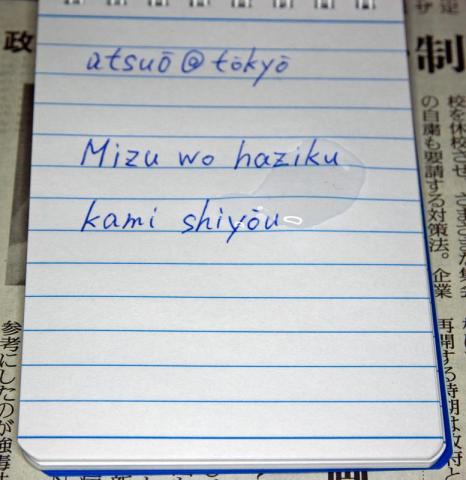 atsuō@tōkyō
Mizu wo haziku
kami shiyōu
政
制
校を休校させ、さまざまな集会
の自粛も要請する対策法。企業
再開する時期は政府と
参考にしたのが強毒